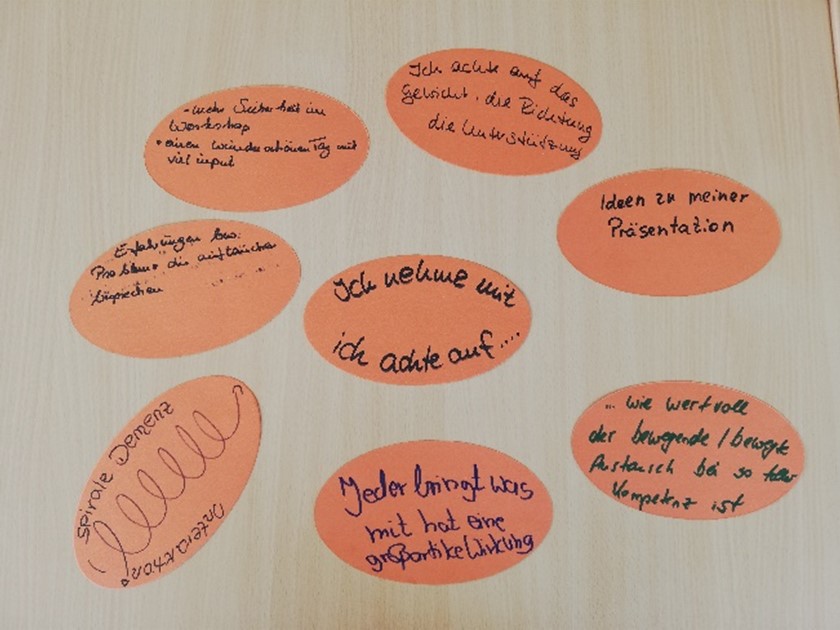 - mehr Sicherheit im
Workshop
• einen wunderschönen Tag mit
viel input
Ich achte auf das
Gewicht, die Richtung
die Unterstützung
Ideen zu meiner
Präsentation
Erfahrungen bzw.
Probleme die auftauchen
besprechen
Ich nehme mit
ich achte auf....
... wie wertvoll
der bewegende / bewegte
Austausch bei so toller
Kompetenz ist
Spirale Demenz
Interaktion
Jeder bringt was
mit hat eine
großartike Wirkung